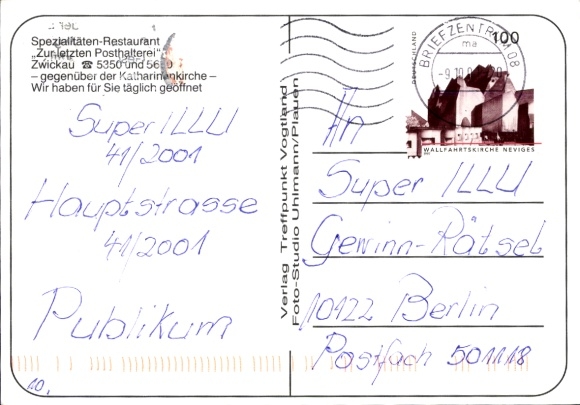 Spezialitäten-Restaurant
„Zur letzten Posthalterei"
Zwickau ☎ 5350 und
– gegenüber der Katharinenkirche –
Wir haben für Sie täglich geöffnet
Super ILLU
41/2001
Hauptstrasse
41/2001
Publikum
10.
Verlag Treffpunkt Vogtland
Foto-Studio Uhlmann/Plauen
DEUTSCHLAND
100
BRIEFZENTRUM 08
ma
WALLFAHRTSKIRCHE NEVIGES
An
Super ILLU
Gewinn-Rätsel
10122 Berlin
Postfach 501118